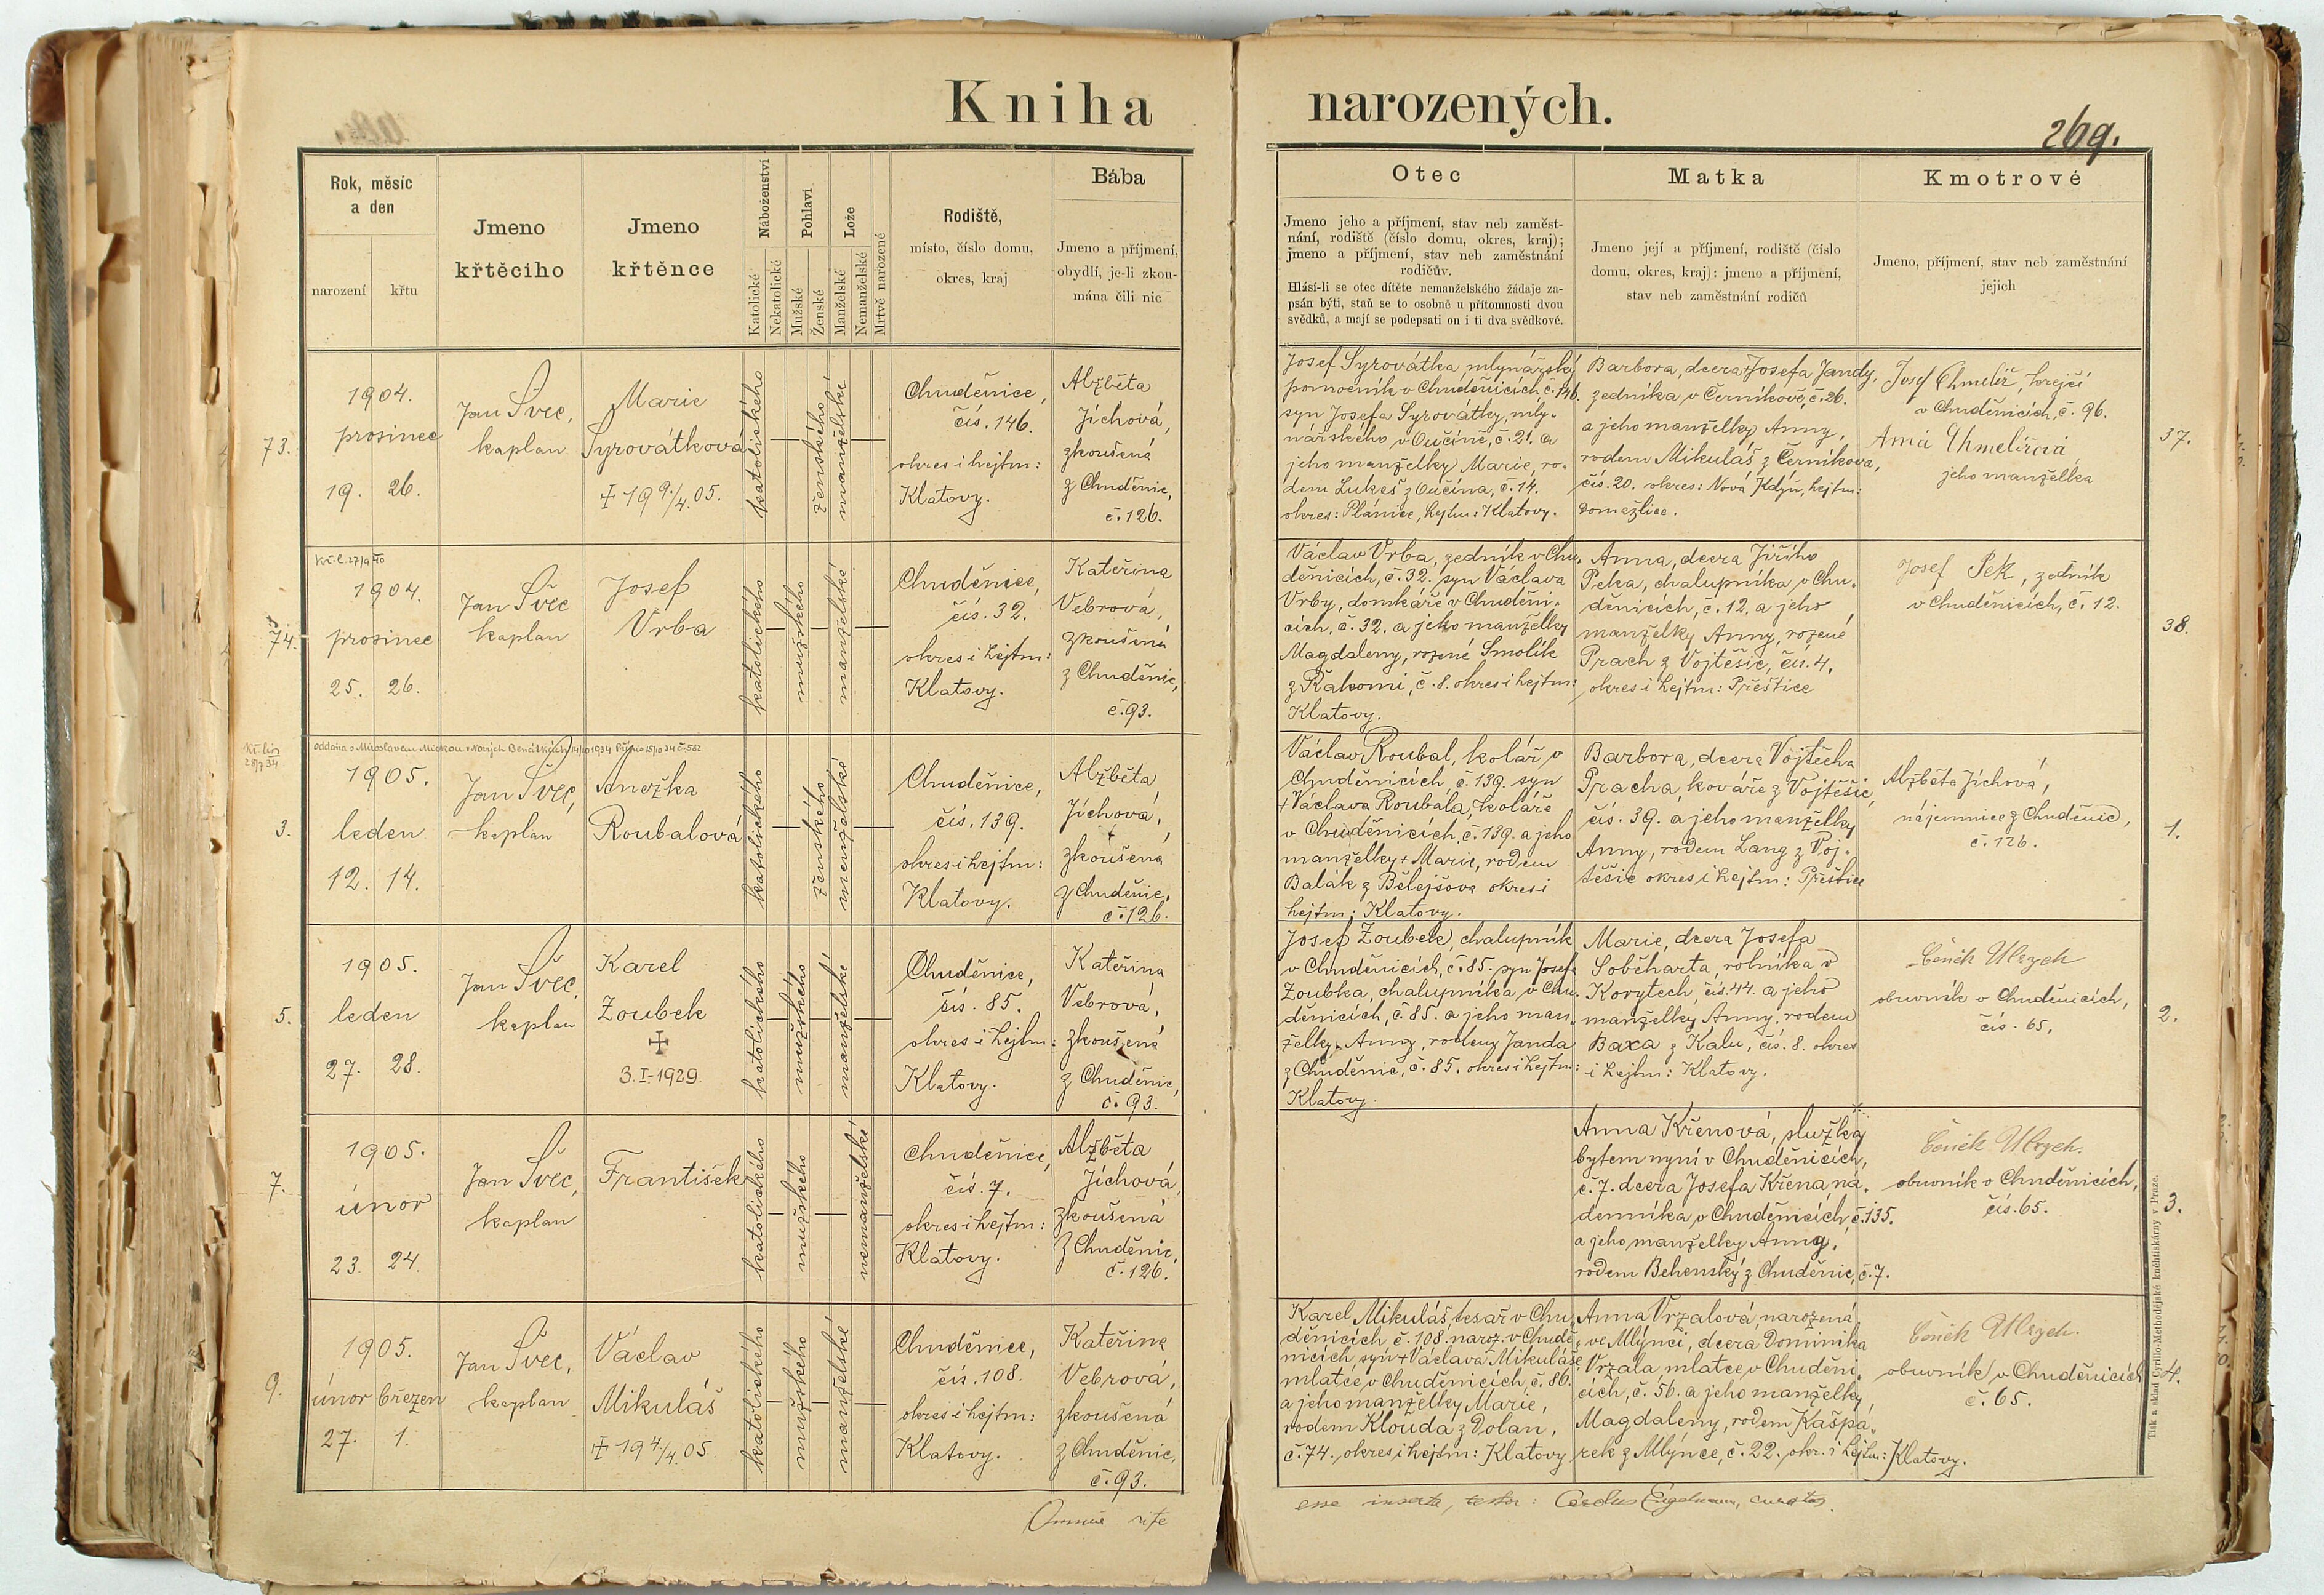 Kniha narozených.
269.
Rok, měsíc
a den
narození
křtu
Jmeno
křtěcího
Jmeno
křtěnce
Náboženství
Katolické
Nekatolické
Pohlaví
Mužské
Ženské
Lože
Manželské
Nemanželské
Mrtvě narozené
Rodiště,
místo, číslo domu,
okres, kraj
Bába
Jmeno a příjmení,
obydlí, je-li zkou-
mána čili nic
Otec
Jmeno jeho a příjmení, stav neb zaměst-
nání, rodiště (číslo domu, okres, kraj);
jmeno a příjmení, stav neb zaměstnání
rodičův.
Hlásí-li se otec dítěte nemanželského žádaje za-
psán býti, staň se to osobně u přítomnosti dvou
svědků, a mají se podepsati on i ti dva svědkové.
Matka
Jmeno její a příjmení, rodiště (číslo
domu, okres, kraj): jmeno a příjmení,
stav neb zaměstnání rodičů
Kmotrové
Jmeno, příjmení, stav neb zaměstnání
jejich
73.
1904.
prosinec
19. 26.
Jan Švec,
kaplan
Marie
Syrovátková
‡ 19 9/4. 05.
katolického
ženského
manželské
Chuděnice,
čís. 146.
okres i hejtm:
Klatovy.
Alžběta
Jíchová,
zkoušená
z Chuděnic,
č. 126.
Josef Syrovátka, mlynářský
pomocník v Chuděnicích, č. 146.
syn Josefa Syrovátky, mly-
nářského v Oučíně, č. 21. a
jeho manželky Marie, ro-
dem Lukeš z Oučína, č. 14.
okres: Plánice, hejtm: Klatovy.
Barbora, dcera +Josefa Jandy,
zedníka v Černíkově, č. 26.
a jeho manželky Anny,
rodem Mikuláš z Černíkova,
čís. 20. okres: Nová Kdyň, hejtm:
Domažlice.
Josef Chmelíř, krejčí
v Chuděnicích, č. 96.
Anna Chmelířová
jeho manželka
37.
74.
Kř. l. 27/9 40
1904.
prosinec
25. 26.
Jan Švec
kaplan
Josef
Vrba
katolického
mužského
manželské
Chuděnice,
čís. 32.
okres i hejtm:
Klatovy.
Kateřina
Vebrová,
zkoušená
z Chuděnic,
č. 93.
Václav Vrba, zedník v Chu-
děnicích, č. 32. syn Václava
Vrby, domkáře v Chuděni-
cích, č. 32. a jeho manželky
Magdaleny, rozené Smolík
z Řakomi, č. 8. okres i hejtm:
Klatovy.
Anna, dcera Jiřího
Peka, chalupníka v Chu-
děnicích, č. 12. a jeho
manželky Anny, rozené
Prach z Vojtěšic, čís. 4.
okres i hejtm: Přeštice
Josef Pek, zedník
v Chuděnicích, č. 12.
38.
Kř. list
28/7 34
oddána s Miroslavem Mickou v Nových Benátkách 14/10 1934 15/10 34 č. 582
3.
1905.
leden
12. 14.
Jan Švec,
kaplan
Anežka
Roubalová
katolického
ženského
manželské
Chuděnice,
čís. 139.
okres i hejtm:
Klatovy.
Alžběta
Jíchová,
zkoušená
z Chuděnic,
č. 126.
Václav Roubal, kolář v
Chuděnicích, č. 139. syn
+Václava Roubala, koláře
v Chuděnicích, č. 139. a jeho
manželky + Marie, rodem
Balák z Bělejšova okres i
hejtm: Klatovy.
Barbora, dcera Vojtěcha
Pracha, kováře z Vojtěšic,
čís. 39. a jeho manželky
Anny, rodem Lang z Voj-
těšic okres i hejtm: Přeštice
Alžběta Jíchová,
nájemnice z Chuděnic,
č. 126.
1.
5.
1905.
leden
27. 28.
Jan Švec,
kaplan
Karel
Zoubek
‡
3. I- 1929.
katolického
mužského
manželské
Chuděnice,
čís. 85.
okres i hejtm:
Klatovy.
Kateřina
Vebrová,
zkoušená
z Chuděnic,
č. 93.
Josef Zoubek, chalupník
v Chuděnicích, č. 85. syn Josefa
Zoubka, chalupníka v Chu-
děnicích, č. 85. a jeho man-
želky Anny, rodem Janda
z Chuděnic, č. 85. okres i hejtm:
Klatovy.
Marie, dcera Josefa
Soběharta, rolníka v
Korytech, čís. 44. a jeho
manželky Anny, rodem
Baxa z Kalu, čís. 8. okres
i hejtm: Klatovy.
Čeněk Ulrych
obuvník v Chuděnicích,
čís. 65.
2.
7.
1905.
únor
23. 24.
Jan Švec,
kaplan
František
katolického
mužského
nemanželské
Chuděnice,
čís. 7.
okres i hejtm:
Klatovy.
Alžběta
Jíchová
zkoušená
z Chuděnic,
č. 126.
Anna Křenová, služka
bytem nyní v Chuděnicích,
č. 7. dcera Josefa Křena ná-
denníka v Chuděnicích, č. 135.
a jeho manželky Anny,
rodem Behenský z Chuděnic, č. 7.
Čeněk Ulrych.
obuvník v Chuděnicích,
čís. 65.
3.
9.
1905.
únor březen
27. 1.
Jan Švec,
kaplan
Václav
Mikuláš
‡ 19 4/4. 05.
katolického
mužského
manželské
Chuděnice,
čís. 108.
okres i hejtm:
Klatovy.
Kateřina
Vebrová,
zkoušená
z Chuděnic,
č. 93.
Karel Mikuláš, tesař v Chu-
děnicích č. 108. naroz. v Chudě-
nicích syn +Václava Mikuláše,
mlatce v Chuděnicích, č. 86.
a jeho manželky Marie,
rodem Klouda z Dolan,
č. 74. okres i hejtm: Klatovy
Anna Vrzalová, narozená
ve Mlýnci, dcera Dominika
Vrzala mlatce v Chuděni-
cích, č. 56. a jeho manželky
Magdaleny, rodem Kašpá-
rek z Mlýnce, č. 22. okr. i hejtm: Klatovy.
Čeněk Ulrych.
obuvník v Chuděnicích
č. 65.
4.
Tisk a sklad Cyrillo-Methodějské kněhtiskárny v Praze.
Omnia rite
esse inserta, testor: Engelmann, curatus.